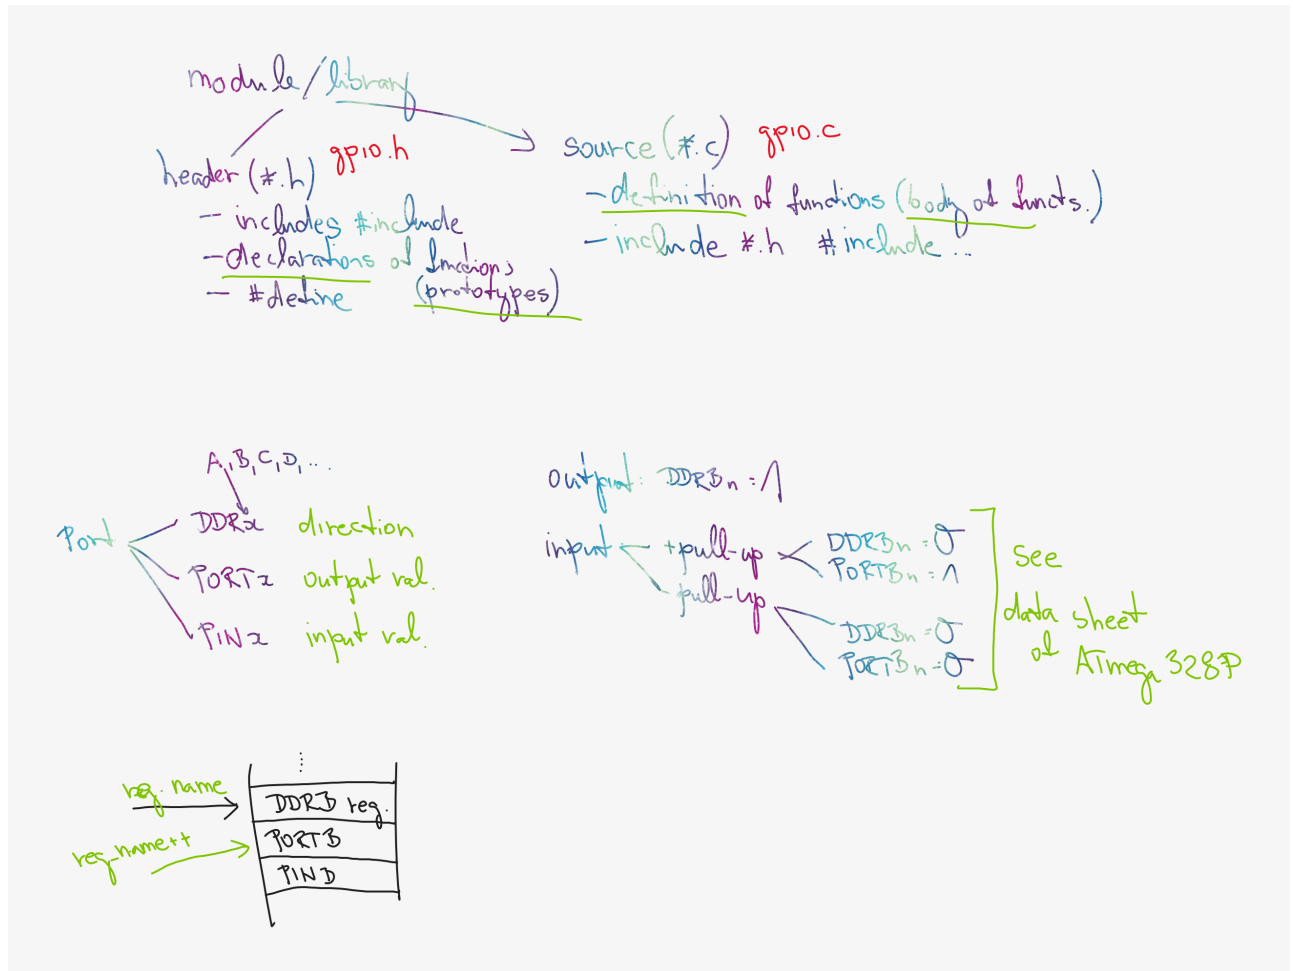 module/library
header (*.h) gpio.h
- includes #include
- declarations of functions
(prototypes)
- #define
source (*.c) gpio.c
- definition of functions (body of functs.)
- include *.h #include ...
A, B, C, D, ...
Port
DDRx direction
PORTx output val.
PINx input val.
output: DDRBn = 1
input
+pull-up
DDRBn = 0
PORTBn = 1
- pull-up
DDRBn = 0
PORTBn = 0
see
data sheet
of ATmega 328P
reg_name
reg_name++
DDRB reg.
PORTB
PIND